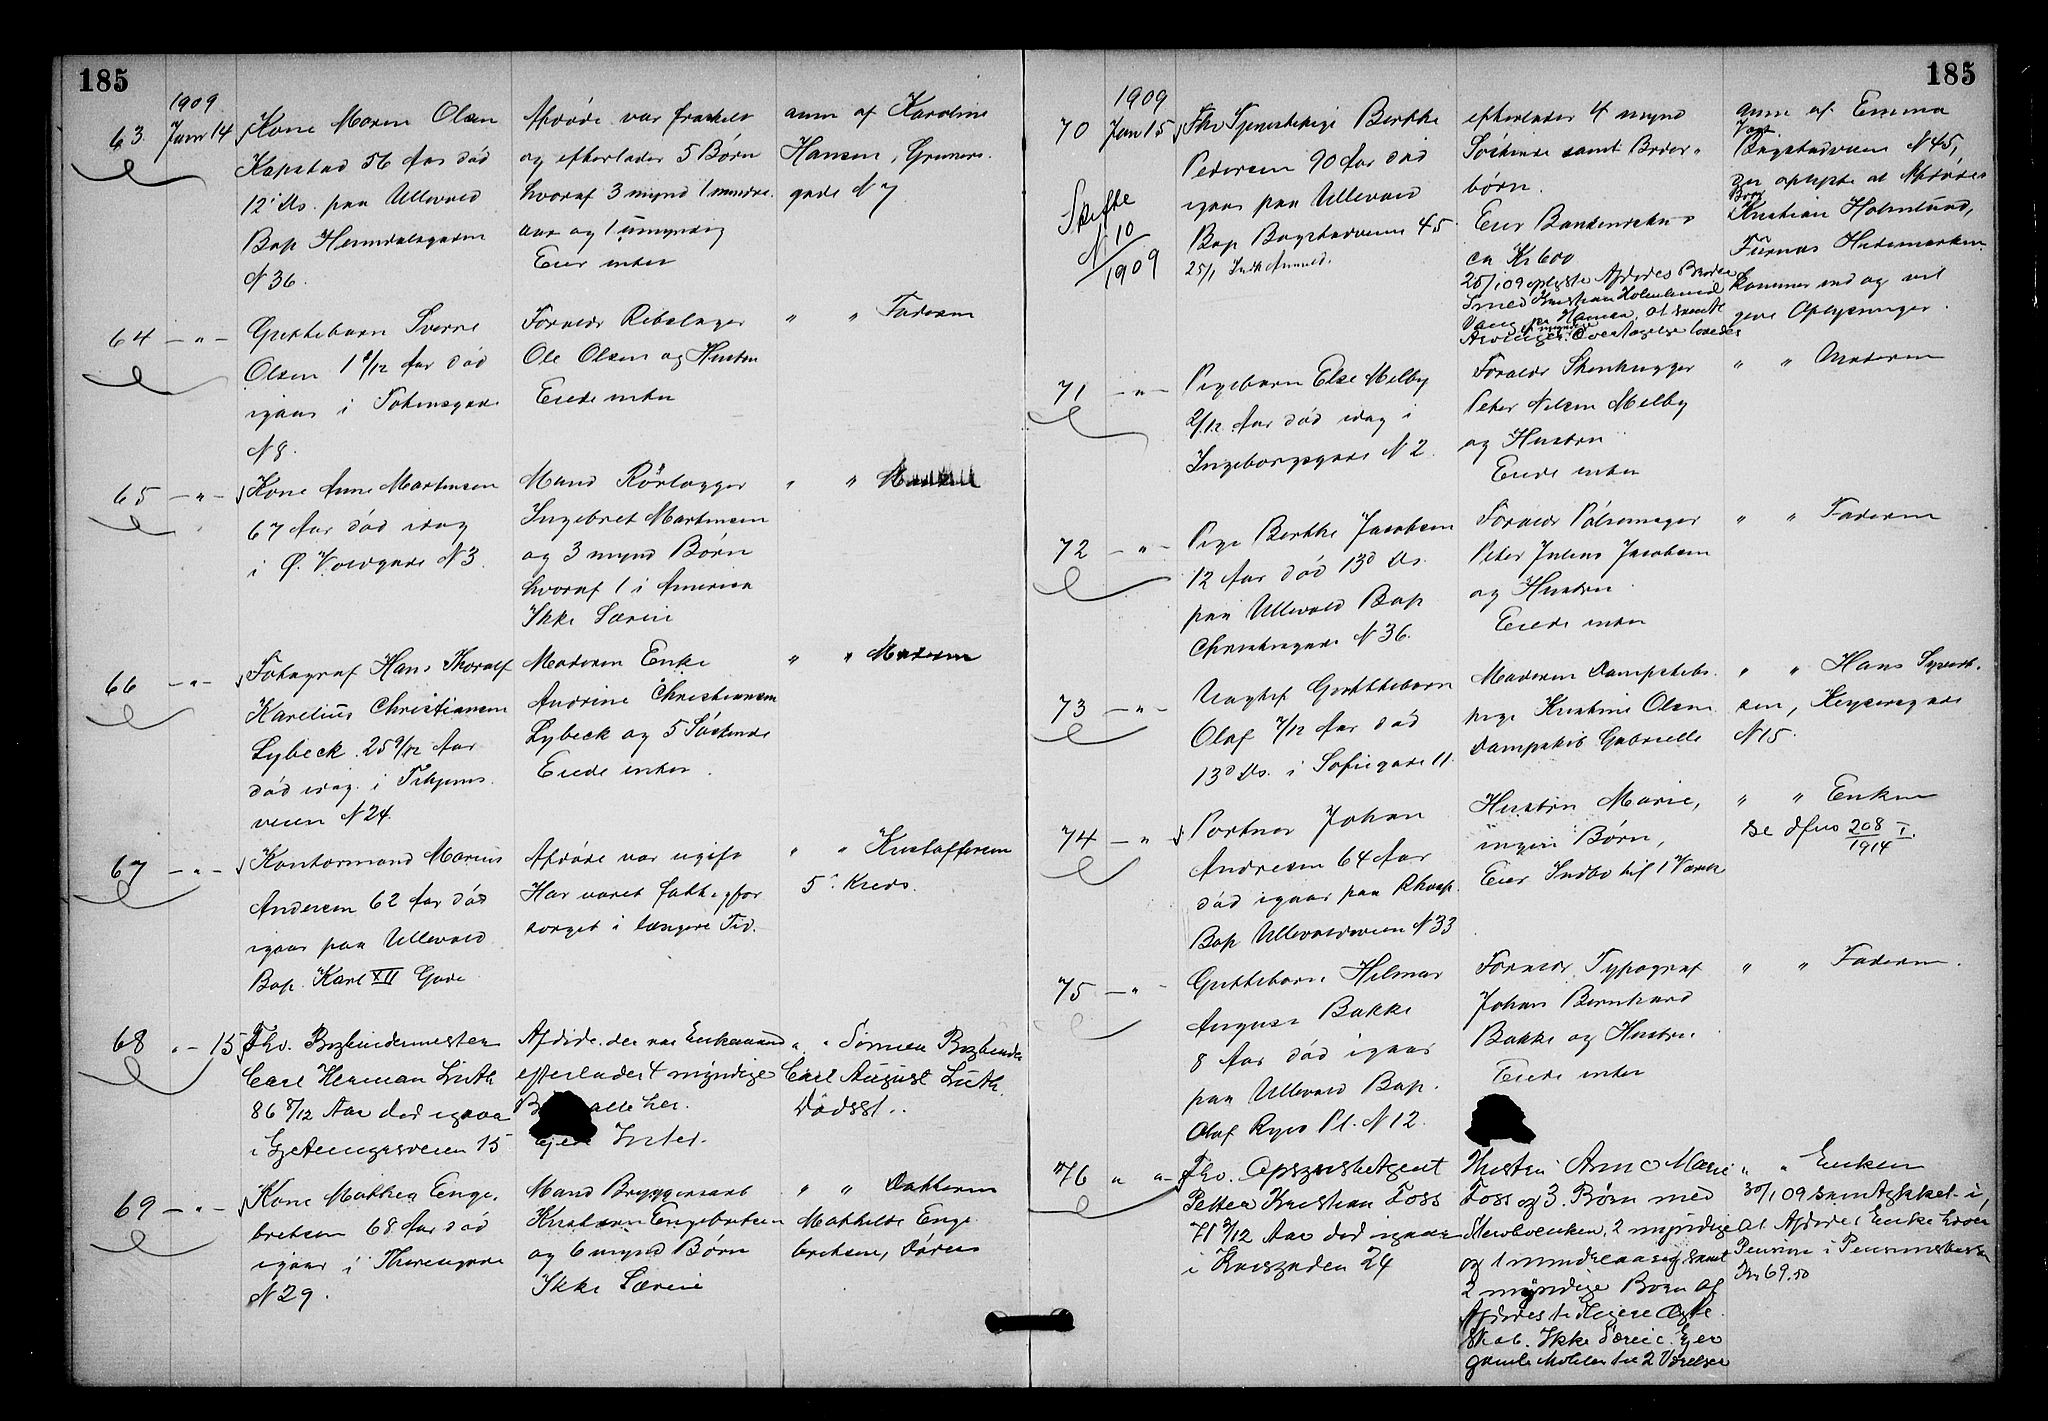 185
1909
63. Janr 14 Kone Maren Olsen
Kapstad 56 Aar død
12' ds. paa Ullevold
Bop Heimdalsgaden
N 36.
Afdøde var fraskilt
og efterlader 5 Børn
hvoraf 3 mynd 1 mindre-
aar og 1 umyndig
Eier intet
anm af Karoline
Hansen, Grüners-
gade N 7
64 — " — Guttebarn Sverre
Olsen 1 8/12 Aar død
igaar i Totensgade
N 8.
Forældr Rebslager
Ole Olsen og Hustru
Eiede intet
" " Faderen
65 — " — Kone Anne Martinsen
67 Aar død idag
i Ø. Voldgade N 3.
Mand Rørlægger
Ingebret Martinsen
og 3 mynd Børn
hvoraf 1 i Amerika
Ikke Særeie
" "
66 — " — Fotograf Hans Thoralf
Karelius Christiansen
Lybeck 25 9/12 Aar
død idag i
veien N 24.
Moderen Enke
Andrine Christiansen
Lybeck og 5 Søskende
Eiede intet.
" " Moderen
67 — " — Kontormand Marius
Andersen 62 Aar død
igaar paa Ullevold
Bop. Karl XII Gade
Afdøde var ugift
Har været fattigfor
sørget i længere Tid.
" " Kristoffersen
5' Kreds.
68 " — 15 Fhv. Bogbindermester
Carl Herman Lüth
86 8/12 Aar død igaar
i Gjetemyrsveien 15
Afdøde der var Enkemand
efterlader 4 myndige
alle her.
Intet.
" " Sønnen Bogbinder
Carl August Lüth
Dødsst..
69 — " — Kone Mathea Enge-
bretsen 68 Aar død
igaar i Thorengade
N 29.
Mand Bryggeriarb
Kristian Engebretsen
og 6 mynd Børn
Ikke Særeie
" " Datteren
Mathilde Enge
bretsen, Døren
185
1909
70 Jan 15 Fhv Tjenestepige Berthe
Pedersen 90 Aar død
igaar paa Ullevold
Bop Bogstadveien 45
25/1
Skifte
N 10
1909
efterlader 4 mynd
Søskende samt Broder-
børn.
Eier Bankindskud
ca Kr 600
25/1 09 oplyste Afdødes Broder
Smed Kristian Holmlund
Vang pr Hamar, at samtl
Arvinger er myndige. Overtagelse
anm af Emma
Bogstadveien N 45,
der oplyste at Afdødes
Bror
Kristian Holmlund,
Furnæs Hedemarken
kommer ind og vil
give Oplysninger.
71 — " — Pigebarn Else Melby
2/12 Aar død idag i
Ingeborgsgade N 2.
Forældr Stenhugger
Peter Nilsen Melby
og Hustru
Eiede intet
" " Moderen
72 — " — Pige Berthe Jacobsen
12 Aar død 13' ds.
paa Ullevold Bop
Christiesgade N 36.
Forældr Pølsemager
Peter Julius Jacobsen
og Hustru.
Eiede intet
" " Faderen
73 — " — Uægtef Guttebarn
Olaf 7/12 Aar død
13' ds. i Sofiegade 11.
Moderen Dampskibs-
pige Kristine Olsen
Dampskib Gabrielle
" " Hans Syvert-
sen, Keysersgade
N 15.
74 — " Portner Johan
Andresen 64 Aar
død igaar paa Rhosp.
Bop Ullevoldsveien N 33
Hustru Marie,
ingen Børn,
Eier Indbo til 1 Værelse
" " Enken
Se Afus 208/1914 I.
75 — " — Guttebarn Hilmar
August Bakke
8 Aar død igaar
paa Ullevold Bop.
Olaf Ryes Pl. N 12.
Forældr Typograf
Johan Bernhard
Bakke og Hustru.
Eiede intet
" " Faderen.
76 " " Fhv. Opsynsbetjent
Petter Kristian Foss
71 9/12 Aar død igaar
i Krusgaden 24
Hustru Anne Marie
Foss og 3 Børn med
Skiwleenken, 2 myndige
og 1 mindreaarig samt
2 myndige Børn af
Afdødes tidligere Ægte-
skab. Ikke Særeie. Ejer
gamle Møbler til 2 Værelser
" " Enken
30/1 09 samtykket i,
at Afdødes Enke hæver
Pension i Pensionskassen
Kr 69.50